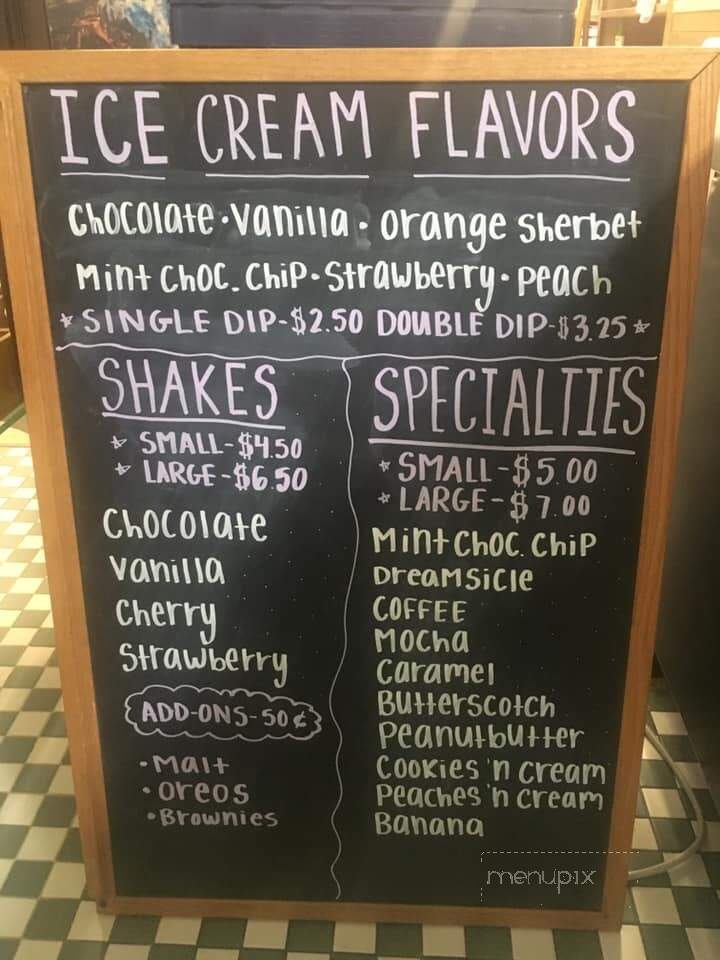 ICE CREAM FLAVORS
Chocolate · Vanilla · Orange Sherbet
Mint Choc. Chip · Strawberry · Peach
* SINGLE DIP - $2.50 DOUBLE DIP - $3.25 *
SHAKES
* SMALL - $4.50
* LARGE - $6.50
Chocolate
Vanilla
Cherry
Strawberry
ADD-ONS - 50¢
• Malt
• Oreos
• Brownies
SPECIALTIES
* SMALL - $5.00
* LARGE - $7.00
Mint Choc. Chip
Dreamsicle
COFFEE
Mocha
Caramel
Butterscotch
Peanutbutter
Cookies 'n Cream
Peaches 'n Cream
Banana
menupix